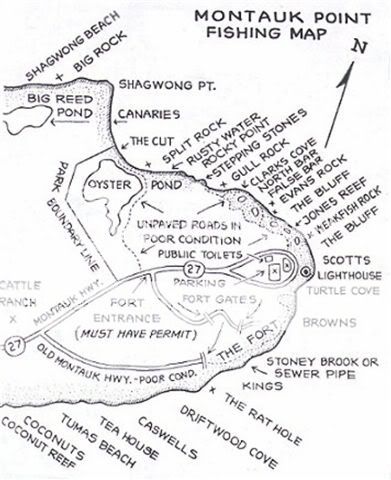 MONTAUK POINT
FISHING MAP
N
SHAGWONG BEACH
+ BIG ROCK
SHAGWONG PT.
BIG REED
POND
CANARIES
THE CUT
+ SPLIT ROCK
RUSTY WATER
ROCKY POINT
STEPPING STONES
+ GULL ROCK
CLARKS COVE
NORTH BAR
FALSE BAR
+ EVANS ROCK
THE BLUFF
JONES REEF
x WEAKFISH ROCK
THE BLUFF
OYSTER
POND
PARK
BOUNDARY LINE
UNPAVED ROADS IN
POOR CONDITION
PUBLIC TOILETS
27
PARKING
SCOTTS
LIGHTHOUSE
TURTLE COVE
CATTLE
RANCH
x
MONTAUK HWY.
FORT
ENTRANCE
(MUST HAVE PERMIT)
FORT GATES
BROWNS
THE FORT
27
OLD MONTAUK HWY.-POOR COND.
STONEY BROOK OR
SEWER PIPE
KINGS
x THE RAT HOLE
DRIFTWOOD COVE
CASWELLS
TEA HOUSE
TUMAS BEACH
COCONUTS
COCONUT REEF